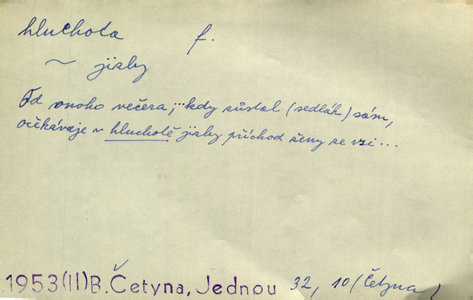 hluchota f.
~ jizby
Od onoho večera, ... kdy zůstal (sedlák) sám,
očekávaje v hluchotě jizby příchod ženy se vsi...
1953(II)B.Četyna, Jednou 32, 10 (Četyna)